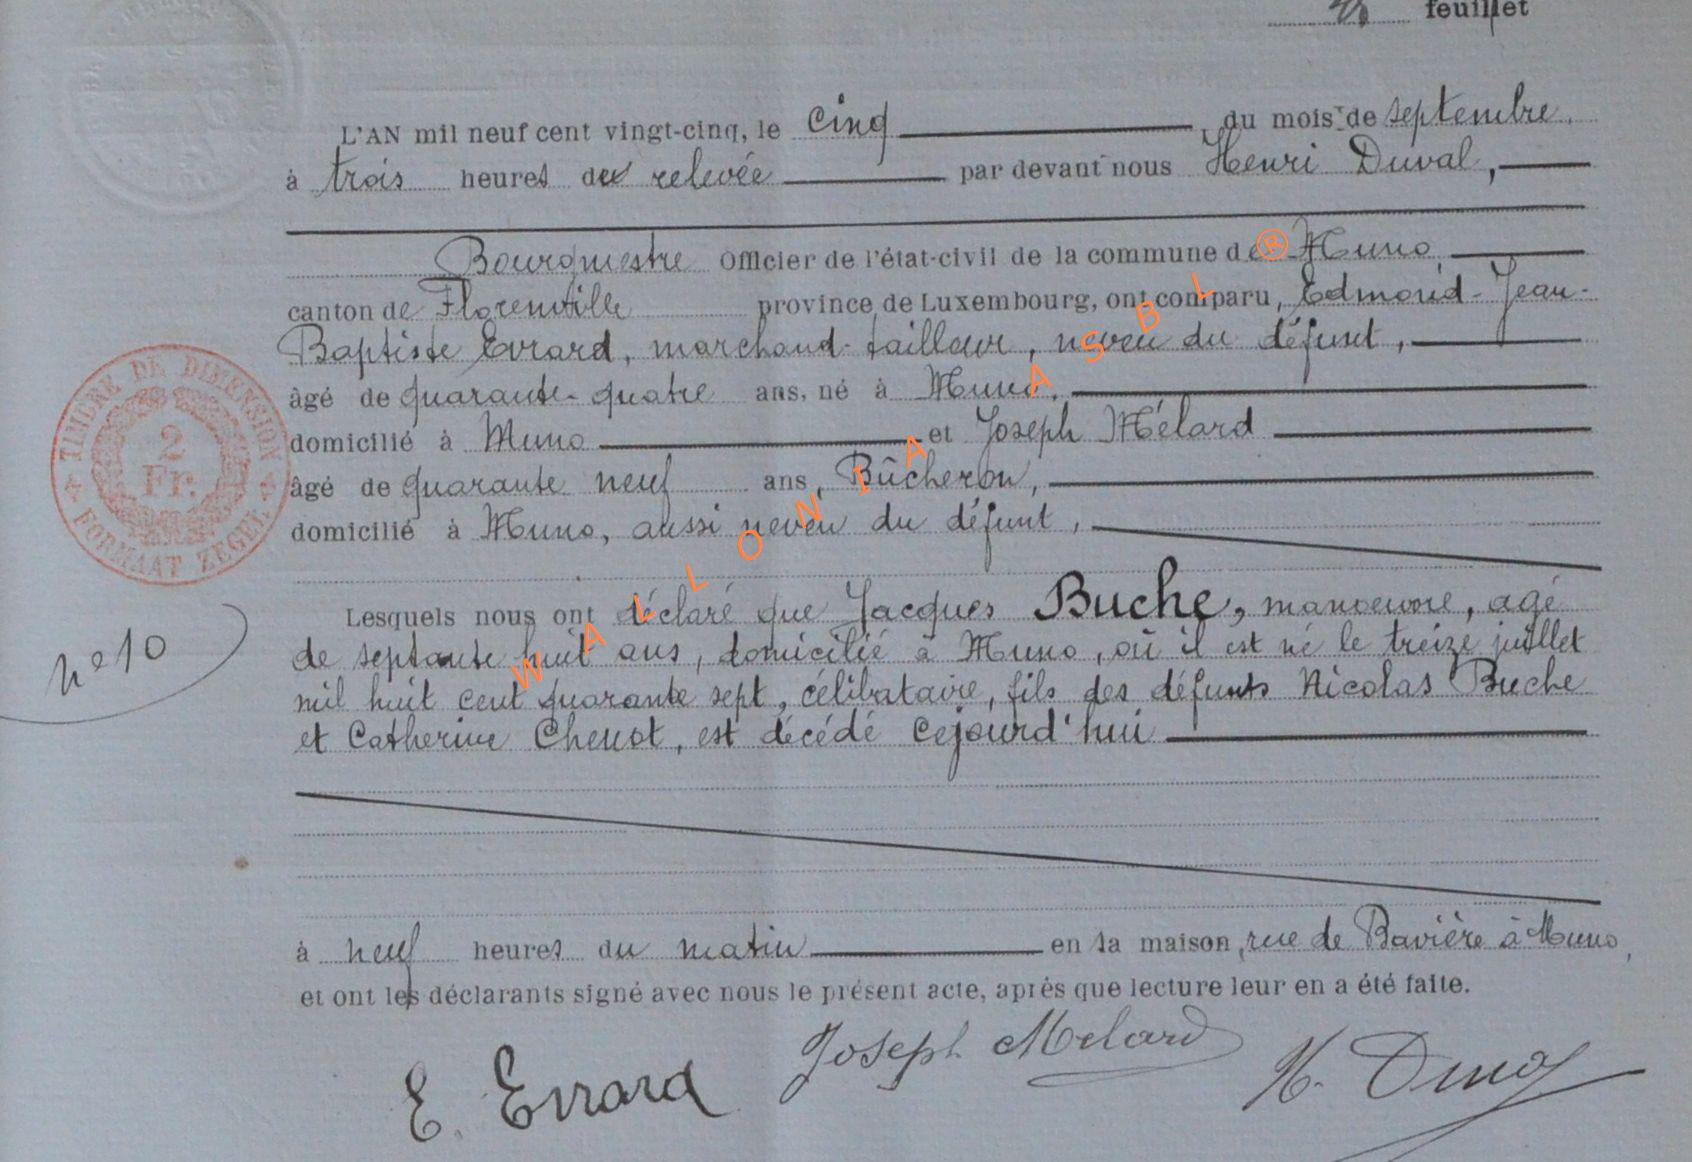 feuillet
L'AN mil neuf cent vingt-cinq, le cinq du mois de septembre,
à trois heures de relevée par devant nous Henri Duval,
Bourgmestre Officier de l'état-civil de la commune de Muno
canton de Florenville province de Luxembourg, ont comparu, Edmond-Jean-
Baptiste Evrard, marchand-tailleur, neveu du défunt,
âgé de quarante-quatre ans, né à Muno,
domicilié à Muno et Joseph Mélard
âgé de quarante neuf ans, Bûcheron,
domicilié à Muno, aussi neveu du défunt,
Lesquels nous ont déclaré que Jacques Buche, manoeuvre, agé
de septante huit ans, domicilié à Muno, où il est né le treize juillet
mil huit cent quarante sept, célibataire, fils des défunts Nicolas Buche
et Catherine Chenot, est décédé cejourd'hui
à neuf heures du matin en sa maison, rue de Bavière à Muno,
et ont les déclarants signé avec nous le présent acte, après que lecture leur en a été faite.
E. Evrard Joseph Melard H. Duval
n° 10
TIMBRE DE DIMENSION
2
Fr.
FORMAAT ZEGEL
WALLONIA ASBL ®